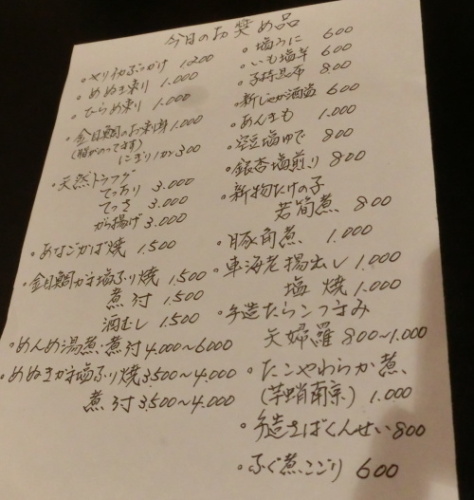 今日のお奨め品
・やりイカぶっかけ 1200
・めぬき刺り 1.000
・ひらめ刺り 1.000
・金目鯛のお刺身 1.000
(脂がのってます)
にぎり1カン 300
・天然トラフグ
てっちり 3.000
てっさ 3.000
から揚げ 3.000
・あなごかば焼 1.500
・金目鯛カマ塩ふり焼 1.500
煮付 1.500
酒むし 1.500
・めんめ湯煮・煮付 4.000〜6000
・めぬきカマ塩ふり焼 3.500〜4.000
煮付 3.500〜4.000
・塩うに 600
・いも塩辛 600
・子持昆布 800
・新じゃが酒盗 600
・あんきも 1.000
・空豆塩ゆで 800
・銀杏塩煎り 800
・新物たけの子
若筍煮 800
・豚角煮 1.000
・車海老揚出し 1.000
塩焼 1.000
・手造たらこつさみ
天婦羅 800〜1.000
・たこやわらか煮
(芋蛸南京) 1.000
・手造さばくんせい 800
・ふぐ煮こごり 600